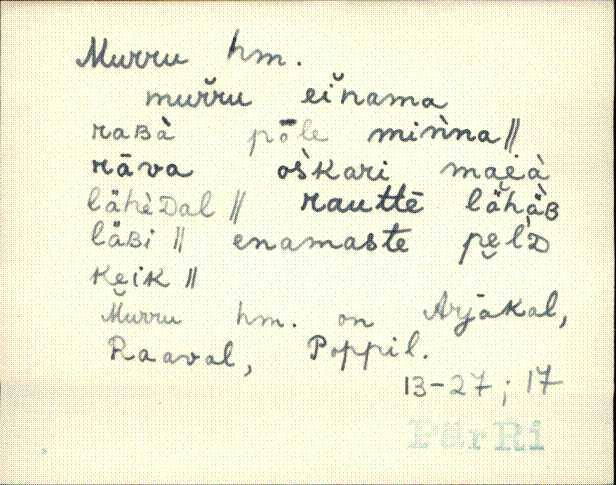 Murru hm.
murr̆u eĭnama
raʙà pōle miǹna ||
rāva os̀kari mae̬i̯à
lähèᴅal || rauttē lähäʙ
läʙi || enamaste pe̬l̀ᴅ
ke̬ik ||
Murru hm. on Arjakal,
Raaval, Poppil.
13-27; 17
PärRi